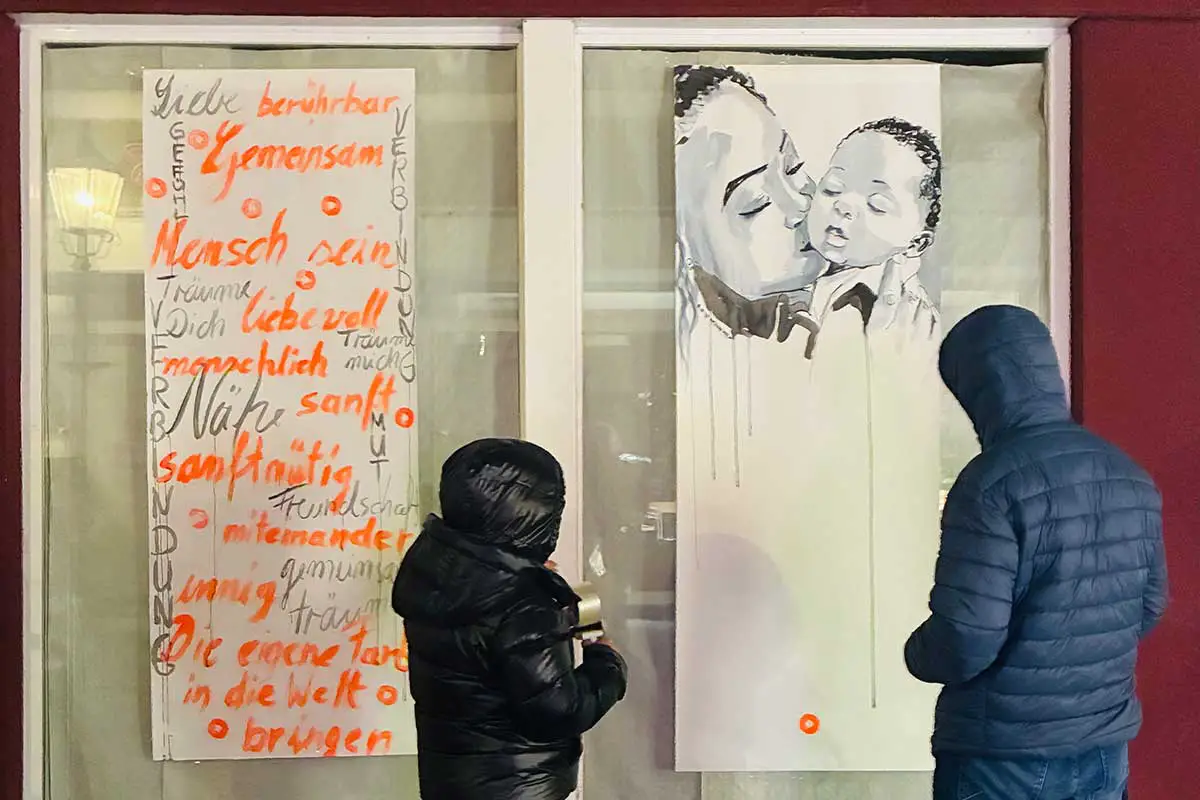 Liebe berührbar
GEFÜHL
VERBINDUNG
Gemeinsam
Mensch sein
Träume
Dich liebevoll
Träume
mich
menschlich
VERBINDUNG
Nähe sanft
MUT
sanftmütig
Freundschaf
miteinander
gemeinsa
innig
träum
Die eigene
in die Welt
bringen